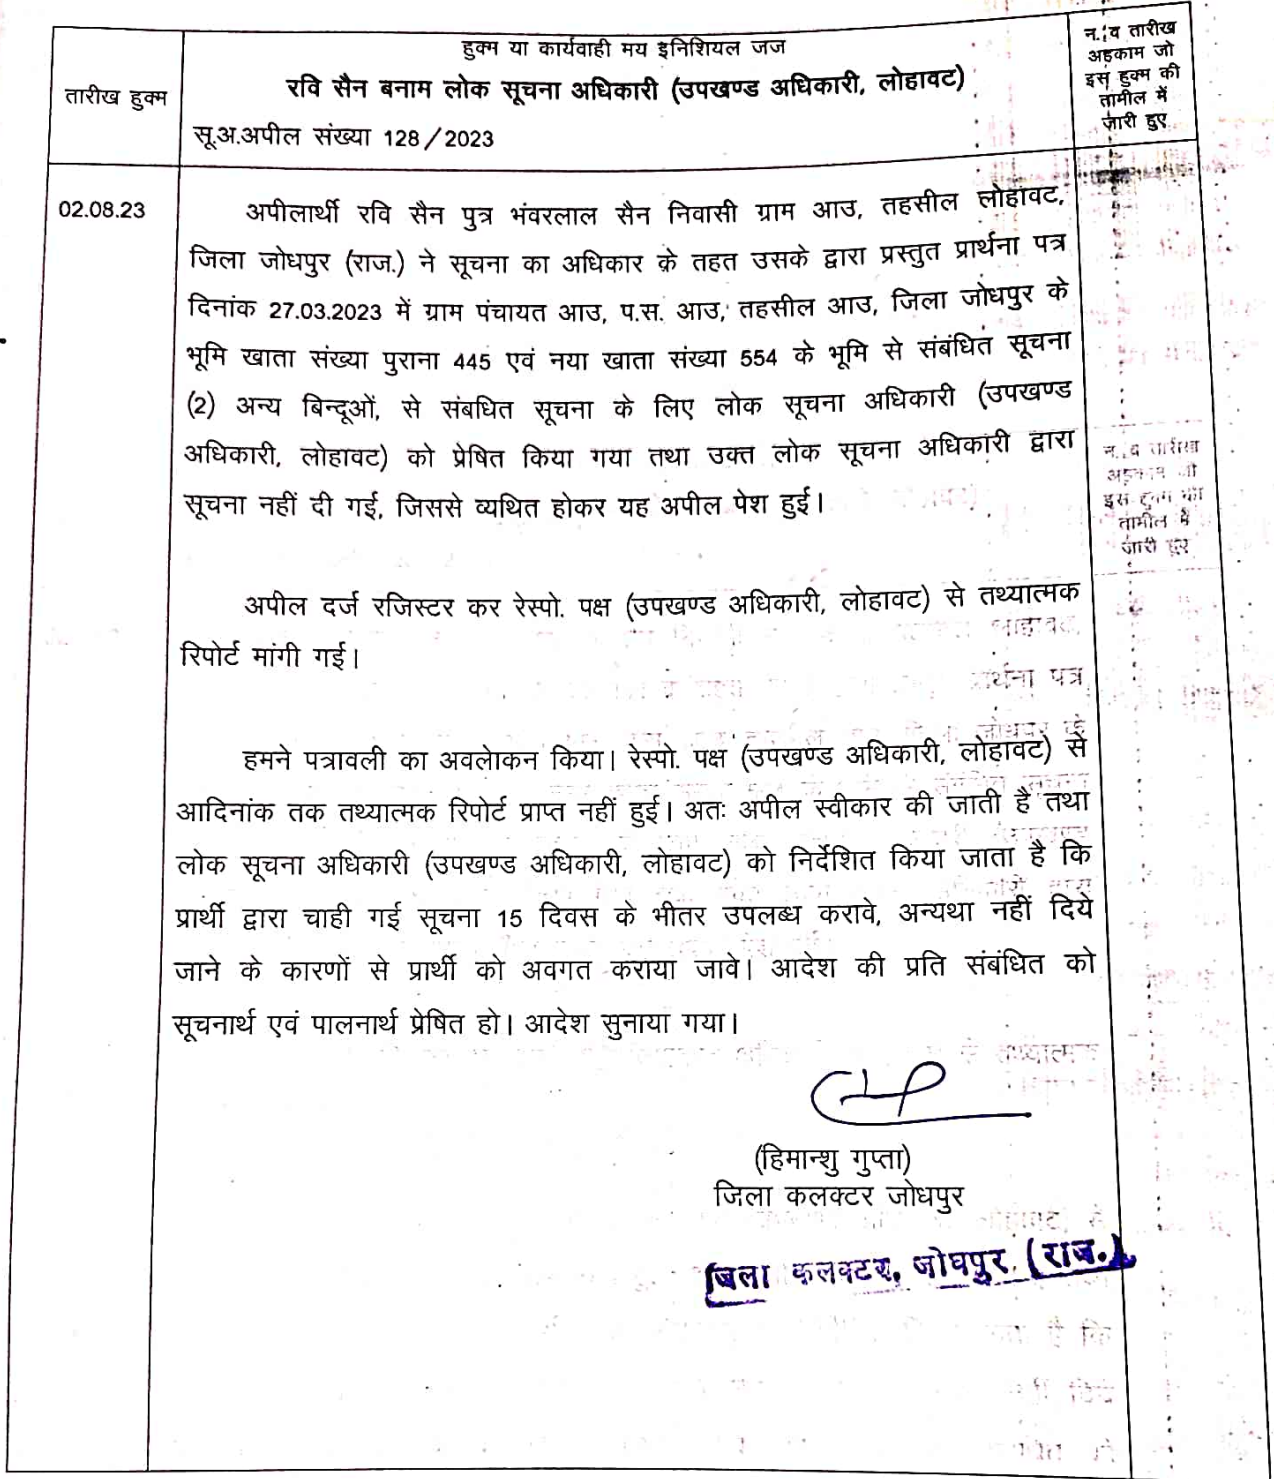 हुक्म या कार्यवाही मय इनिशियल जज
रवि सैन बनाम लोक सूचना अधिकारी (उपखण्ड अधिकारी, लोहावट)
तारीख हुक्म
सू.अ.अपील संख्या 128/2023
न. व तारीख
अहकाम जो
इस हुक्म की
तामील में
जारी हुए
02.08.23
अपीलार्थी रवि सैन पुत्र भंवरलाल सैन निवासी ग्राम आउ, तहसील लोहावट,
जिला जोधपुर (राज.) ने सूचना का अधिकार के तहत उसके द्वारा प्रस्तुत प्रार्थना पत्र
दिनांक 27.03.2023 में ग्राम पंचायत आउ, प.स. आउ, तहसील आउ, जिला जोधपुर के
भूमि खाता संख्या पुराना 445 एवं नया खाता संख्या 554 के भूमि से संबंधित सूचना
(2) अन्य बिन्दूओं, से संबधित सूचना के लिए लोक सूचना अधिकारी (उपखण्ड
अधिकारी, लोहावट) को प्रेषित किया गया तथा उक्त लोक सूचना अधिकारी द्वारा
सूचना नहीं दी गई, जिससे व्यथित होकर यह अपील पेश हुई।
अपील दर्ज रजिस्टर कर रेस्पो. पक्ष (उपखण्ड अधिकारी, लोहावट) से तथ्यात्मक
रिपोर्ट मांगी गई।
हमने पत्रावली का अवलोकन किया। रेस्पो. पक्ष (उपखण्ड अधिकारी, लोहावट) से
आदिनांक तक तथ्यात्मक रिपोर्ट प्राप्त नहीं हुई। अतः अपील स्वीकार की जाती है तथा
लोक सूचना अधिकारी (उपखण्ड अधिकारी, लोहावट) को निर्देशित किया जाता है कि
प्रार्थी द्वारा चाही गई सूचना 15 दिवस के भीतर उपलब्ध करावे, अन्यथा नहीं दिये
जाने के कारणों से प्रार्थी को अवगत कराया जावे। आदेश की प्रति संबंधित को
सूचनार्थ एवं पालनार्थ प्रेषित हो। आदेश सुनाया गया।
(हिमान्शु गुप्ता)
जिला कलक्टर जोधपुर
जिला कलक्टर, जोधपुर (राज.)